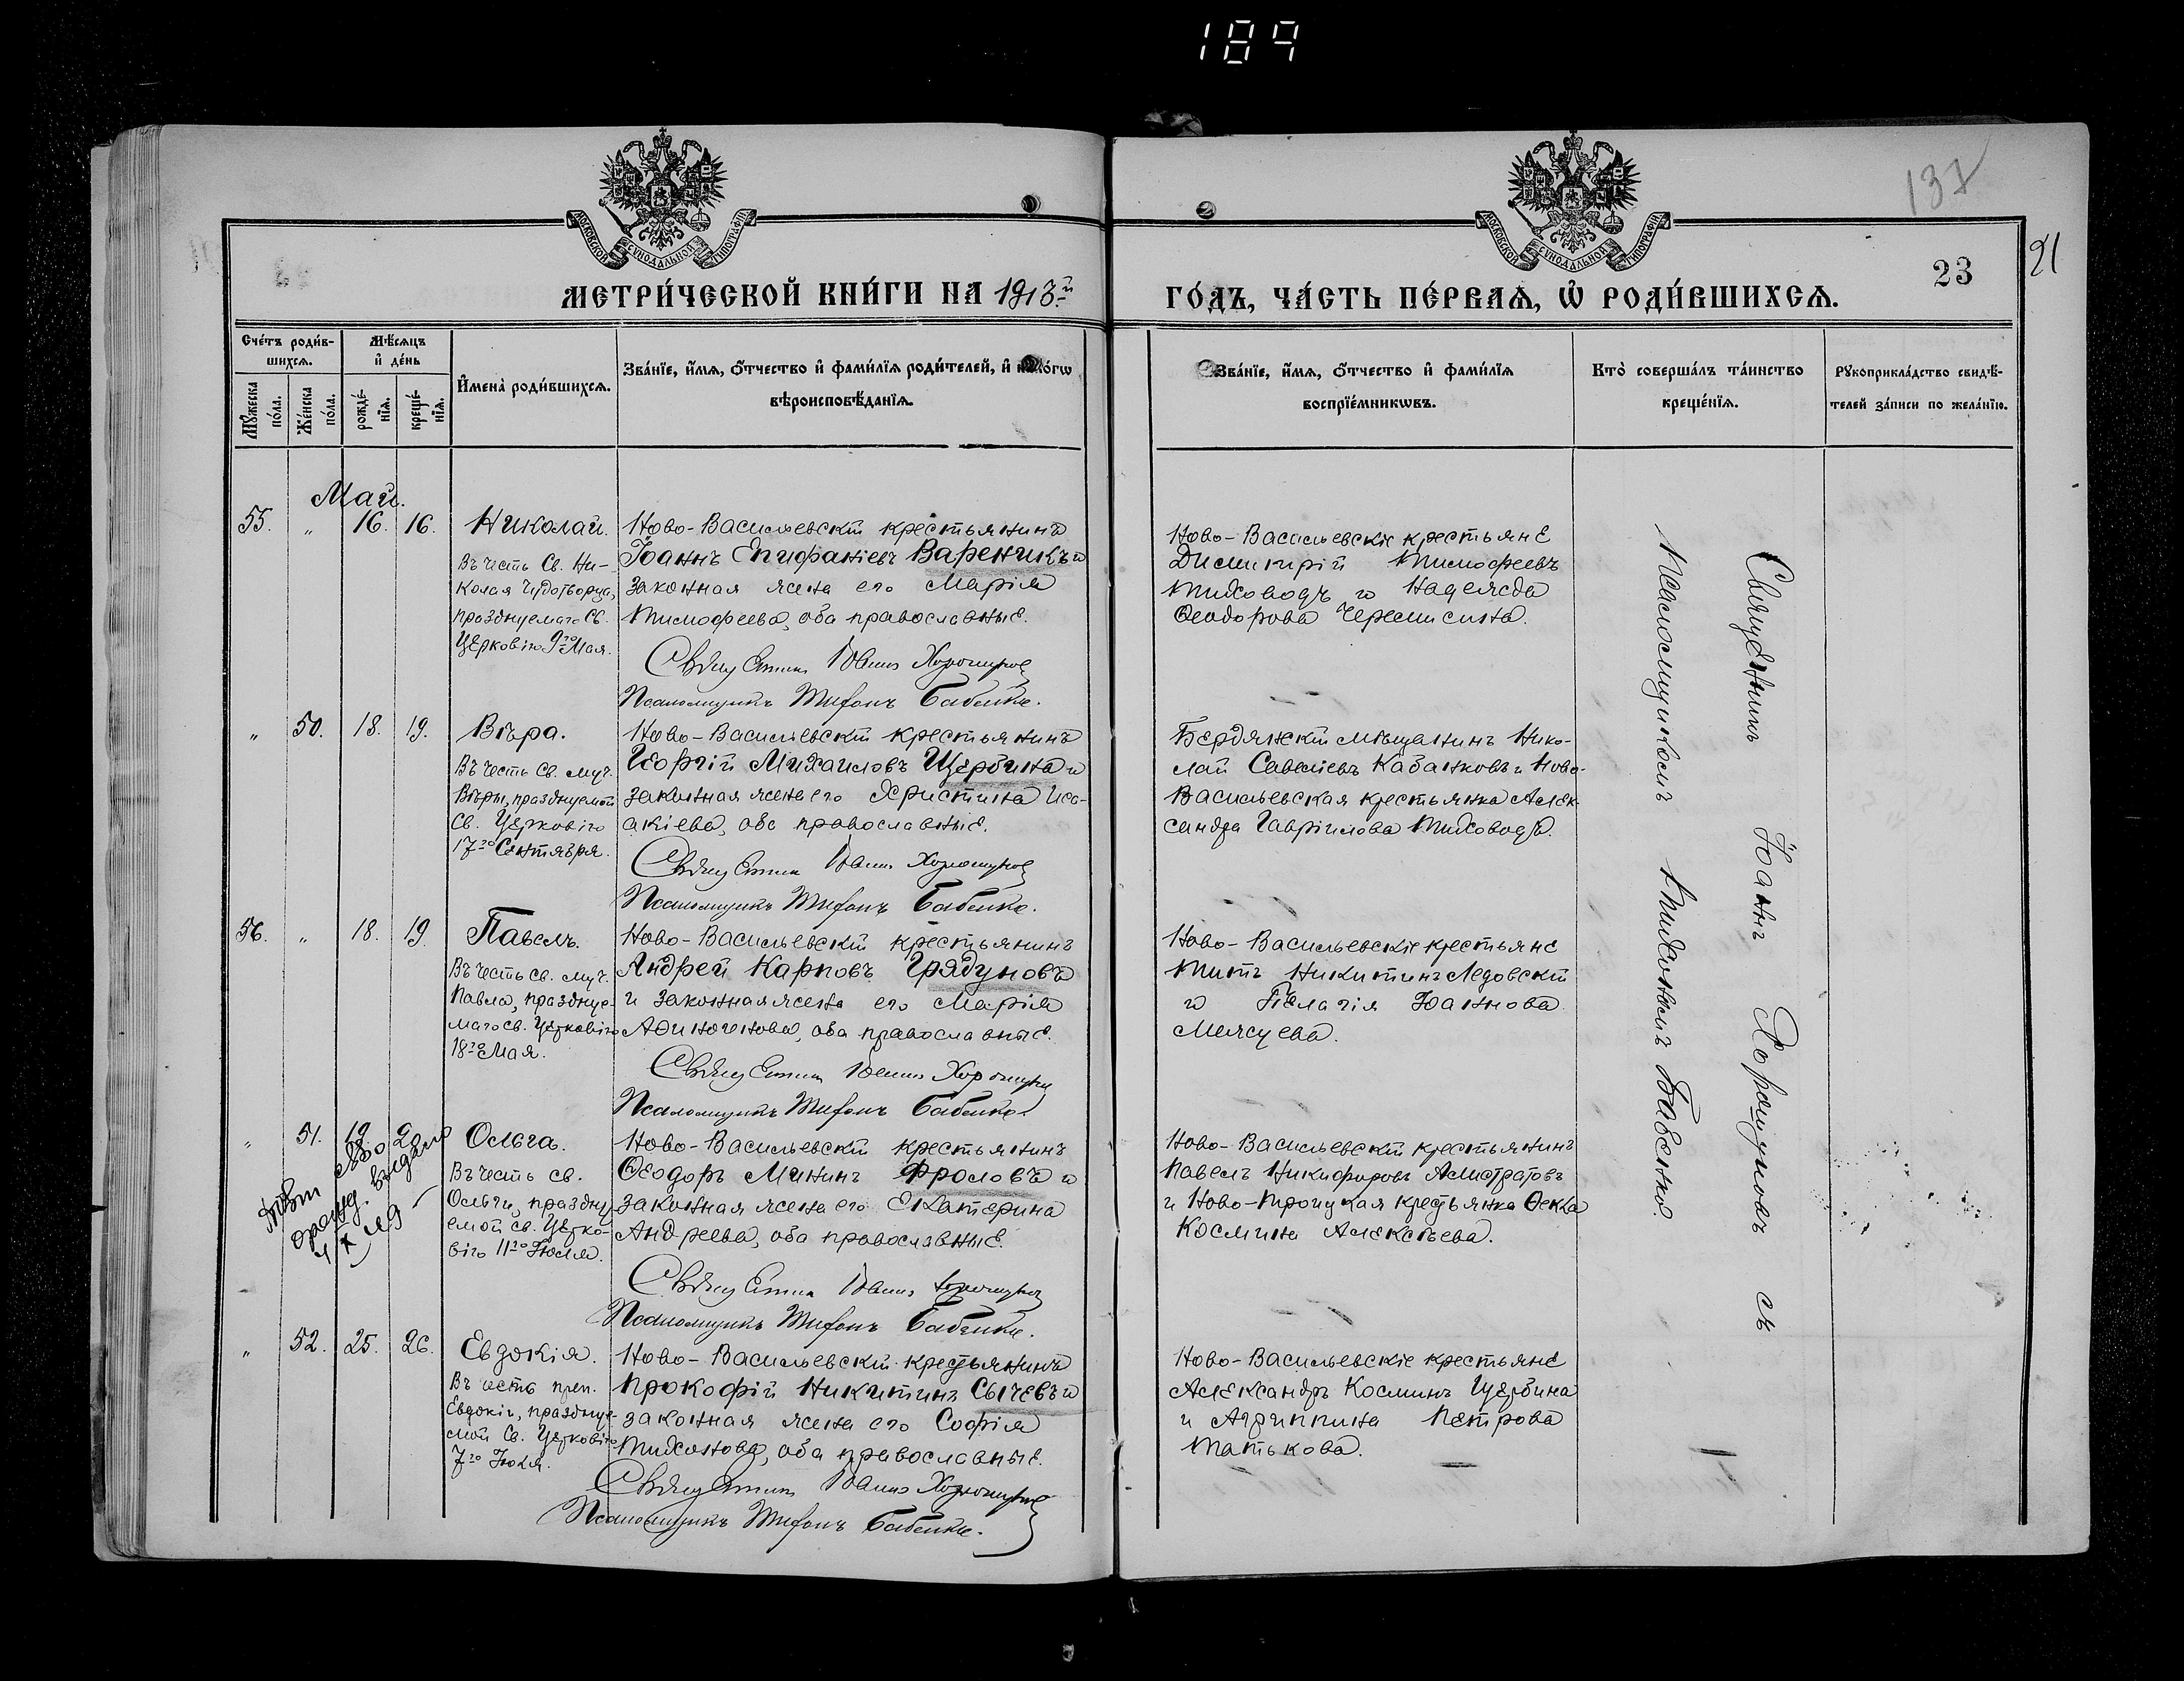 189
137
МОСКОВСКОЙ СѴНОДАЛЬНОЙ ТИПОГРАФІИ
МОСКОВСКОЙ СѴНОДАЛЬНОЙ ТИПОГРАФІИ
21
23
МЕТРИ́ЧЕСКОЙ КНИ́ГИ НА 1913й
ГО́ДЪ, ЧА́СТЬ ПЕ́РВАѦ, Ѡ҆ РОДИ́ВШИХСѦ.
Сче́тъ роди́в-
шихсѧ.
Мꙋ́жеска по́ла.
Же́нска по́ла.
Мѣ́сяцъ
и҆ де́нь
рожде́-
нїѧ.
креще́-
нїѧ.
И҆мена̀ роди́вшихсѧ.
Зва́нїе, и҆́мѧ, ѻ҆́тчество и҆ фами́лїѧ роди́телей, и҆ како́гѡ
вѣроисповѣ́данїѧ.
Зва́нїе, и҆́мѧ, ѻ҆́тчество и҆ фами́лїѧ
воспрїе́мникѡвъ.
Кто̀ соверша́лъ та́инство
креще́нїѧ.
Рꙋкоприкла́дство свидѣ́-
телей за́писи по жела́нїю.
Май.
55. „ 16. 16. Николай.
Въ честь Св. Ни-
колая Чудотворца,
празднуемаго Св.
Церковію 9го Мая.
Ново-Васильевскій крестьянинъ
Іоаннъ Епифаніевъ Вареникъ и
законная жена его Марія
Тимофеева, оба православные.
Священникъ Іоаннъ Хорошуновъ
Псаломщикъ Тифонъ Бабенко.
Ново-Васильевскіе крестьяне
Димитрій Тимофеевъ
Тиховодъ и Надежда
Ѳеодорова Черемисина.
„ 50. 18. 19. Вѣра.
Въ честь Св. муч.
Вѣры, празднуемой
Св. Церковію
17го Сентября.
Ново-Васильевскій крестьянинъ
Георгій Михаиловъ Щербина и
законная жена его Христина Иса-
акіева, оба православные.
Священникъ Іоаннъ Хорошуновъ
Псаломщикъ Тифонъ Бабенко.
Бердянскій мѣщанинъ Нико-
лай Савеліевъ Кабанковъ и Ново-
Васильевская крестьянка Алек-
сандра Гавріилова Тиховодъ.
56. „ 18. 19. Павелъ.
Въ честь св. муч.
Павла, праздуе-
маго св. Церковію
18го Мая.
Ново-Васильевскій крестьянинъ
Андрей Карповъ Грядуновъ
и законная жена его Марія
Аѳиногенова, оба православные.
Священникъ Іоаннъ Хорошуновъ
Псаломщикъ Тифонъ Бабенко.
Ново-Васильевскіе крестьяне
Титъ Никитинъ Ледовскій
и Пелагія Іоаннова
Мелсуева.
„ 51. 19. 20. Ольга.
Въ честь св.
Ольги, праздну
емой св. Церко-
вію 11го Іюля.
Ново-Васильевскій крестьянинъ
Ѳеодоръ Мининъ Фроловъ и
законная жена его Екатерина
Андреева, оба православные.
Священникъ Іоаннъ Хорошуновъ
Псаломщикъ Тифонъ Бабенко.
Ново-Васильевскій крестьянинъ
Павелъ Никифоровъ Алистратовъ
и Ново-Троицкая крестьянка Ѳекла
Космина Алексѣева.
„ 52. 25. 26. Евдокія.
Въ честь преп.
Евдокіи, праздуе-
мой Св. Церковію
7го Іюля.
Ново-Васильевскій крестьянинъ
Прокофій Никитинъ Сычевъ и
законная жена его Софія
Тихонова, оба православные.
Священникъ Іоаннъ Хорошуновъ
Псаломщикъ Тифонъ Бабенко.
Ново-Васильевскіе крестьяне
Александръ Косминъ Щербина
и Агриппина Петрова
Татькова.
Священникъ Іоаннъ Хорошуновъ съ
Псаломщикомъ Тихономъ Бабенко.